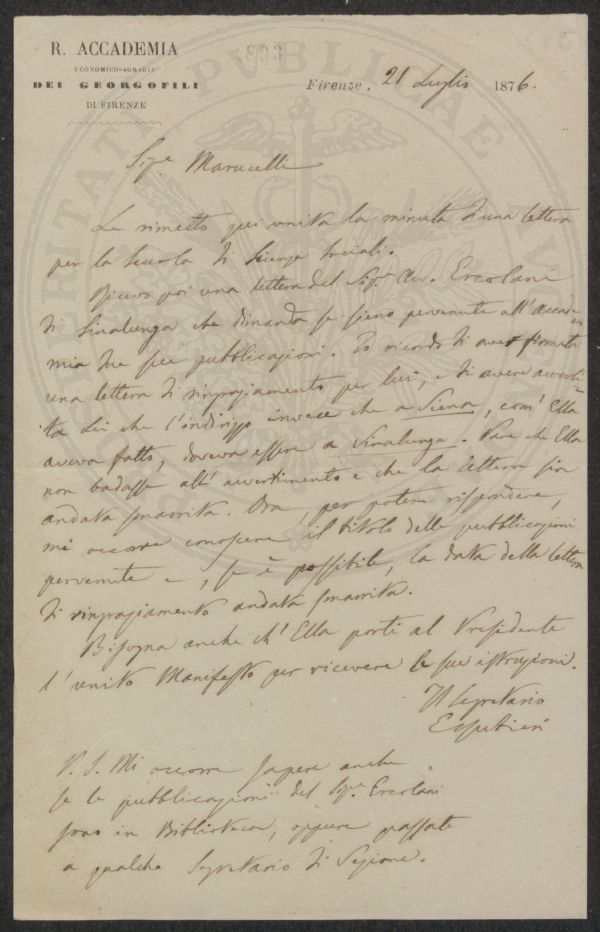 R. ACCADEMIA
ECONOMICO-AGRARIA
DEI GEORGOFILI
DI FIRENZE
893
Firenze, 21 Luglio 1876.
Sigre Marucelli
Le rimetto qui unita la minuta d'una lettera
per la Scuola di Scienze Sociali.
Ricevo poi una lettera del Sigr Cav. Ercolani
di Sinalunga che dimanda se sieno pervenute all'Accade-
mia tre sue pubblicazioni. Io ricordo di aver firmata
una lettera di ringraziamento per lui, e di avere avverti-
ta Lei che l'indirizzo invece che a Siena, com'Ella
aveva fatto, doveva essere a Sinalunga. Pare che Ella
non badasse all'avvertimento e che la lettera sia
andata smarrita. Ora, per potere rispondere,
mi occorre conoscere il titolo delle pubblicazioni
pervenute e, se è possibile, la data della lettera
di ringraziamento andata smarrita.
Bisogna anche ch'Ella porti al Presidente
l'unito Manifesto per ricevere le sue istruzioni.
Il Segretario
P.S. Mi occorre sapere anche
se le pubblicazioni del Sigr Ercolani
sono in Biblioteca, oppure passate
a qualche Segretario di Sezione.